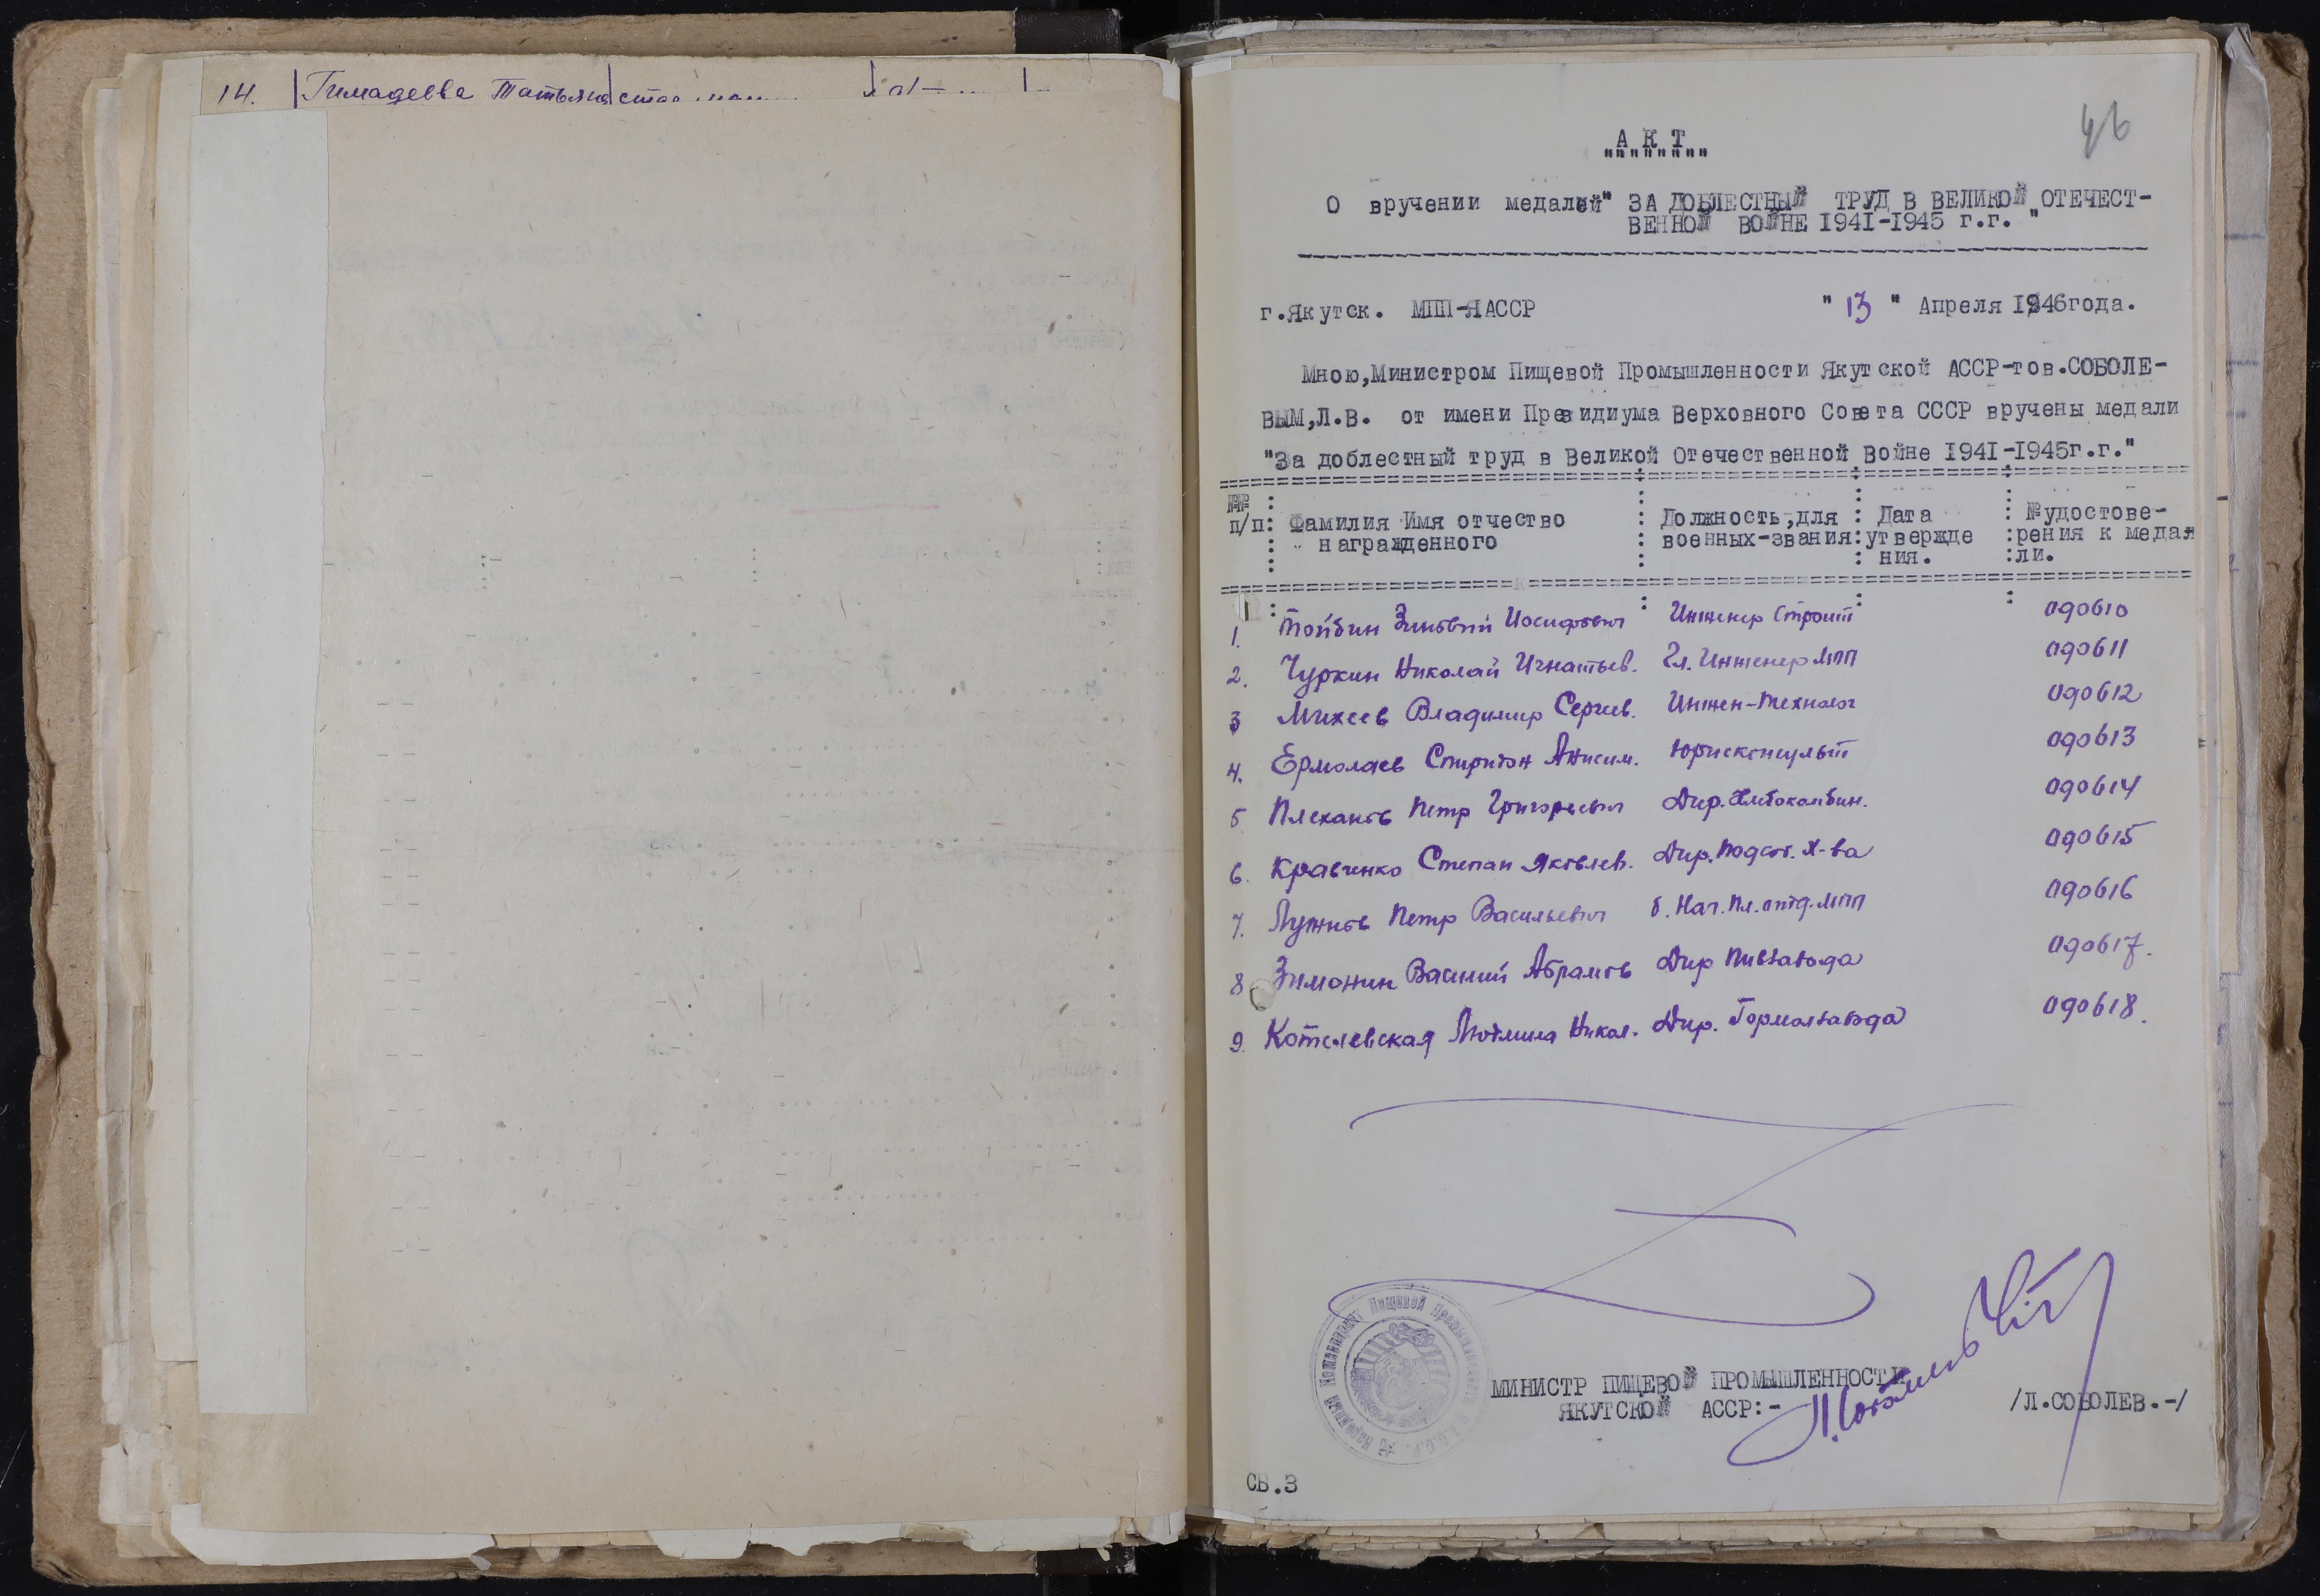 14. Гимадеева Татьяна
46
А К Т
О вручении медалей" ЗА ДОБЛЕСТНЫЙ ТРУД В ВЕЛИКОЙ ОТЕЧЕСТ-
ВЕННОЙ ВОЙНЕ 1941-1945 г.г. "
г.Якутск. МПП-ЯАССР " 13 " Апреля 1946года.
Мною,Министром Пищевой Промышленности Якутской АССР-тов.СОБОЛЕ-
ВЫМ,Л.В. от имени Президиума Верховного Совета СССР вручены медали
"За доблестный труд в Великой Отечественной Войне 1941-1945г.г."
№№ п/п: Фамилия Имя отчество награжденного : Должность,для военных-звания: Дата утвержде ния. : №удостове- рения к медал ли.
1. Тойбин Зиновий Иосифович Инженер Строит 090610
2. Чуркин Николай Игнатьев. Гл. Инженер МПП 090611
3 Михеев Владимир Сергеев. Инжен-Технолог 090612
4. Ермолаев Спиридон Анисим. Юрисконсульт 090613
5 Плеханов Петр Григорьевич Дир. Хлебокомбин. 090614
6. Кравченко Степан Яковлев. Дир. Подсоб. Х-ва 090615
7. Лужнов Петр Васильевич б. Нач. Пл. отд. МПП 090616
8 Зимонин Василий Абрамов Дир Пивзавода 090617.
9. Котелевская Людмила Никол. Дир. Гормолзавода 090618.
Народный Комиссариат Пищевой Промышленности
МИНИСТР ПИЩЕВОЙ ПРОМЫШЛЕННОСТИ
ЯКУТСКОЙ АССР:- Л. Соболев /Л.СОБОЛЕВ.-/
СБ.3